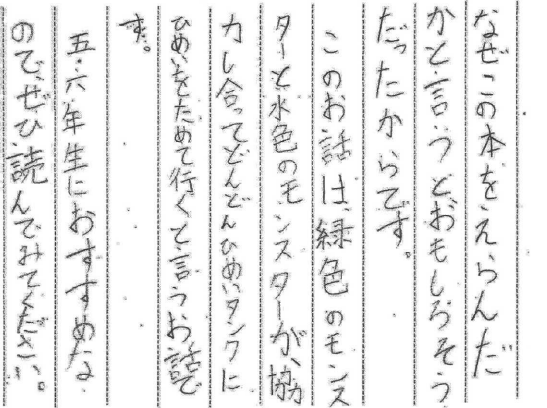 なぜこの本をえらんだ
かと言うとおもしろそう
だったからです。
このお話は、緑色のモンス
ターと水色のモンスターが、協
力し合ってどんどんひめいタンクに
ひめいをためて行くと言うお話で
す。
五・六年生におすすめな
のでぜひ読んでみてください。